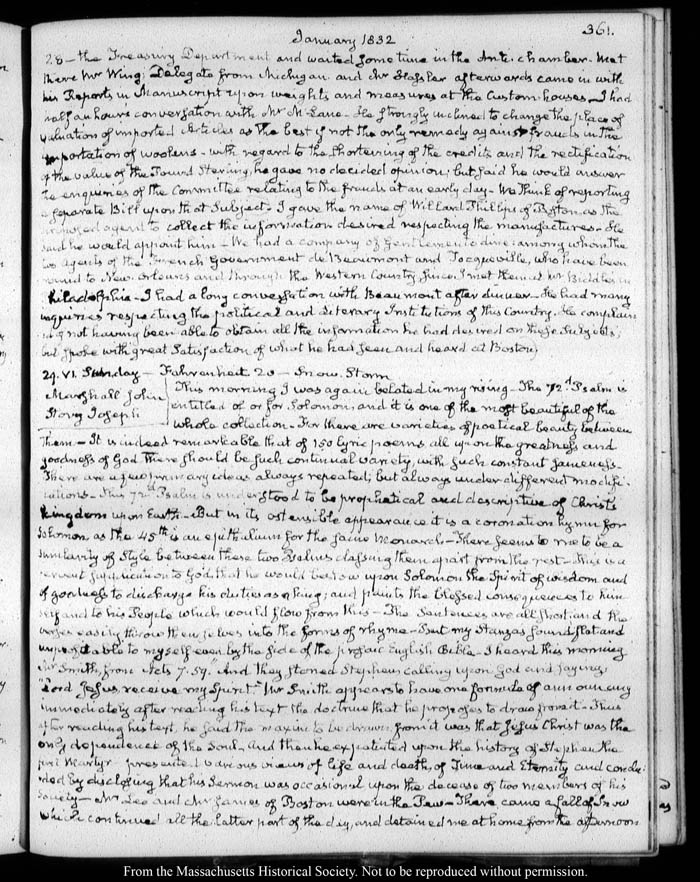 361.
January 1832
28 - the Treasury Department and waited some time in the Ante-chamber. Met
there Mr Wing, Delegate from Michigan. and Mr Hassler afterwards came in with
his Reports in Manuscript upon weights and measures at the Custom-houses - I had
half an hours conversation with Mr McLane - He strongly inclined to change the place of
valuation of imported Articles as the best if not the only remedy against frauds in the
importation of woolens - with regard to the shortening of the credits and the rectification
of the value of the Pound Sterling, he gave no decided opinion; but said he would answer
the enquiries of the Committee relating to the frauds at an early day - We think of reporting
a separate Bill upon that Subject. I gave the name of Willard Phillips of Boston, as the
proposed agent to collect the information desired respecting the manufactures - He
said he would appoint him - We had a company of Gentlemen to dine: among whom the
two agents of the French Government de Beaumont and Tocqueville, who have been
round to New-Orleans and through the Western Country, since I met them at Mr Biddle's in
Philadelphia - I had a long conversation with Beaumont after dinner - He had many
enquiries respecting the political and Literary Institutions of this Country. He complains
of not having been able to obtain all the information he had desired on these Subjects;
but spoke with great Satisfaction of what he had seen and heard at Boston.
29. VI. Sunday - Fahrenheit 20 - Snow. Storm
Marshall John This morning I was again belated in my rising - The 72d Psalm is
Story Joseph entitled of or for Solomon, and it is one of the most beautiful of the
whole collection - For there are varieties of poetical beauty between
them - It is indeed remarkable that of 150 lyric poems all upon the greatness and
goodness of God, there should be such continual variety, with such constant sameness -
There are a few primary ideas always repeated; but always under different modifi-
cations - This 72d Psalm is understood to be prophetical and descriptive of Christ's
kingdom upon Earth - But in its ostensible appearance it is a coronation hymn for
Solomon, as the 45th is an epithalium for the same Monarch - There seems to me to be a
similarity of Style between these two Psalms classing them apart from the rest - This is a
fervent supplication to God, that he would bestow upon Solomon the Spirit of wisdom and
of goodness to discharge his duties as a king; and paints the blessed consequences to him-
self and to his People which would flow from this - The Sentences are all short: and the
verses easily throw themselves into the forms of rhyme - But my Stanzas sound flat and
even by the side of the prosaic English Bible - I heard this morning
Mr Smith, from Acts 7. 59. And they stoned Stephen calling upon God and saying,
"Lord Jesus receive my Spirit" Mr Smith appears to have one formula of announcing
immediately after reading his text the doctrine that he proposes to draw from it - Thus
after reading his text, he said the maxim to be drawn from it was that Jesus Christ was the
only dependence of the Soul, and then he expatiated upon the history of Stephen the
first Martyr - presented various views of life and death, of Time and Eternity and conclu-
ded by disclosing that his Sermon was occasioned upon the decease of two members of his
Society - Mr Lee and Mr James of Boston were in the Pew - There came a fall of Snow
which continued all the latter part of the day, and detained me at home from the afternoon
From the Massachusetts Historical Society. Not to be reproduced without permission.